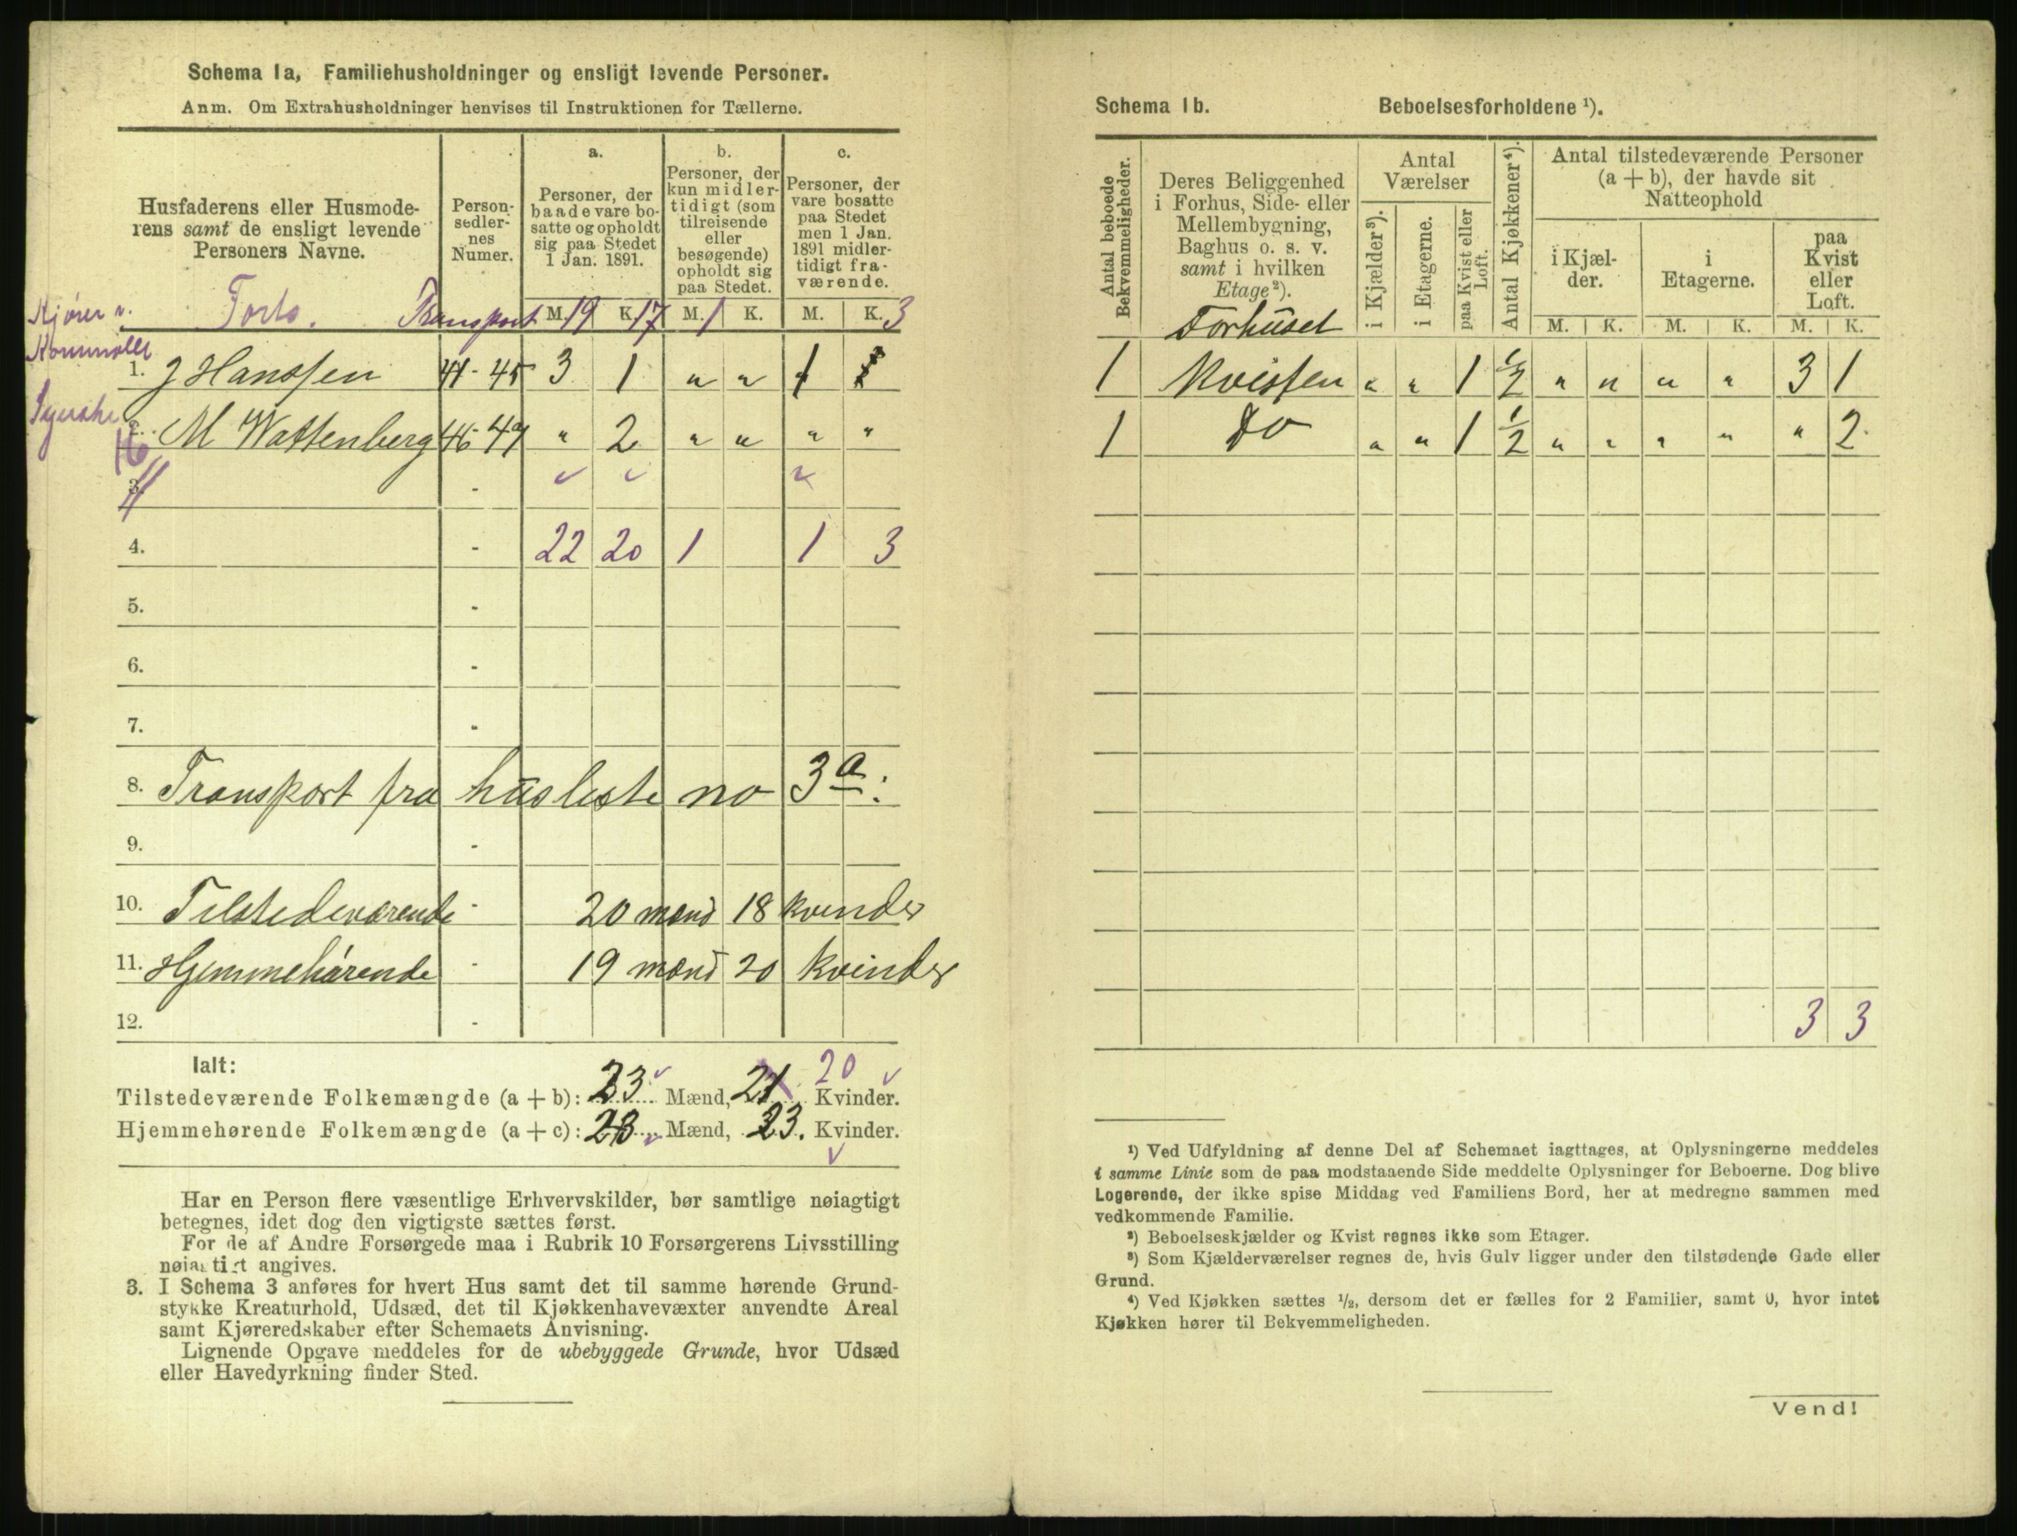 Schema 1a, Familiehusholdninger og ensligt levende Personer.
Anm. Om Extrahusholdninger henvises til Instruktionen for Tællerne.
Husfaderens eller Husmode-
rens samt de ensligt levende
Personers Navne.
Person-
sedler-
nes
Numer.
a.
Personer, der
baade vare bo-
satte og opholdt
sig paa Stedet
1 Jan. 1891.
b.
Personer, der
kun midler-
tidigt (som
tilreisende
eller
besøgende)
opholdt sig
paa Stedet.
c.
Personer, der
vare bosatte
paa Stedet
men 1 Jan.
1891 midler-
tidigt fra-
værende.
Kjører v. Forts. Transport M. 19 K. 17 M. 1 K. M. K. 3
1. J Hanssen 41-45 3 1 " " 1
2. M Wattenberg 46-47 " 2 " " " "
16
3. -
4. - 22 20 1 1 3
5. -
6. -
7. -
8. Transport fra husliste no 3a:
9. -
10. Tilstedeværende - 20 mænd 18 kvinder
11. Hjemmehörende - 19 mænd 20 kvinder
12. -
Ialt:
20
Tilstedeværende Folkemængde (a + b): 23 Mænd, 21 Kvinder.
Hjemmehørende Folkemængde (a + c): 23 Mænd, 23. Kvinder.
Har en Person flere væsentlige Erhvervskilder, bør samtlige nøiagtigt
betegnes, idet dog den vigtigste sættes først.
For de af Andre Forsørgede maa i Rubrik 10 Forsørgerens Livsstilling
nøiagtigt angives.
3. I Schema 3 anføres for hvert Hus samt det til samme hørende Grund-
stykke Kreaturhold, Udsæd, det til Kjøkkenhavevæxter anvendte Areal
samt Kjøreredskaber efter Schemaets Anvisning.
Lignende Opgave meddeles for de ubebyggede Grunde, hvor Udsæd
eller Havedyrkning finder Sted.
Schema 1b. Beboelsesforholdene ¹).
Antal beboede
Bekvemmeligheder.
Deres Beliggenhed
i Forhus, Side- eller
Mellembygning,
Baghus o. s. v.
samt i hvilken
Etage²).
Forhuset
Antal
Værelser
i Kjælder³).
i Etagerne.
paa Kvist eller
Loft.
Antal Kjøkkener⁴).
Antal tilstedeværende Personer
(a + b), der havde sit
Natteophold
i Kjæl-
der.
i
Etagerne.
paa
Kvist
eller
Loft.
M. K. M. K. M. K.
1 Kvisten " " 1 ½ " " " " 3 1
1 Do " " 1 ½ " " " " " 2
3 3
¹) Ved Udfyldning af denne Del af Schemaet iagttages, at Oplysningerne meddeles
i samme Linie som de paa modstaaende Side meddelte Oplysninger for Beboerne. Dog blive
Logerende, der ikke spise Middag ved Familiens Bord, her at medregne sammen med
vedkommende Familie.
²) Beboelseskjælder og Kvist regnes ikke som Etager.
³) Som Kjælderværelser regnes de, hvis Gulv ligger under den tilstødende Gade eller
Grund.
⁴) Ved Kjøkken sættes ½, dersom det er fælles for 2 Familier, samt 0, hvor intet
Kjøkken hører til Bekvemmeligheden.
Vend!